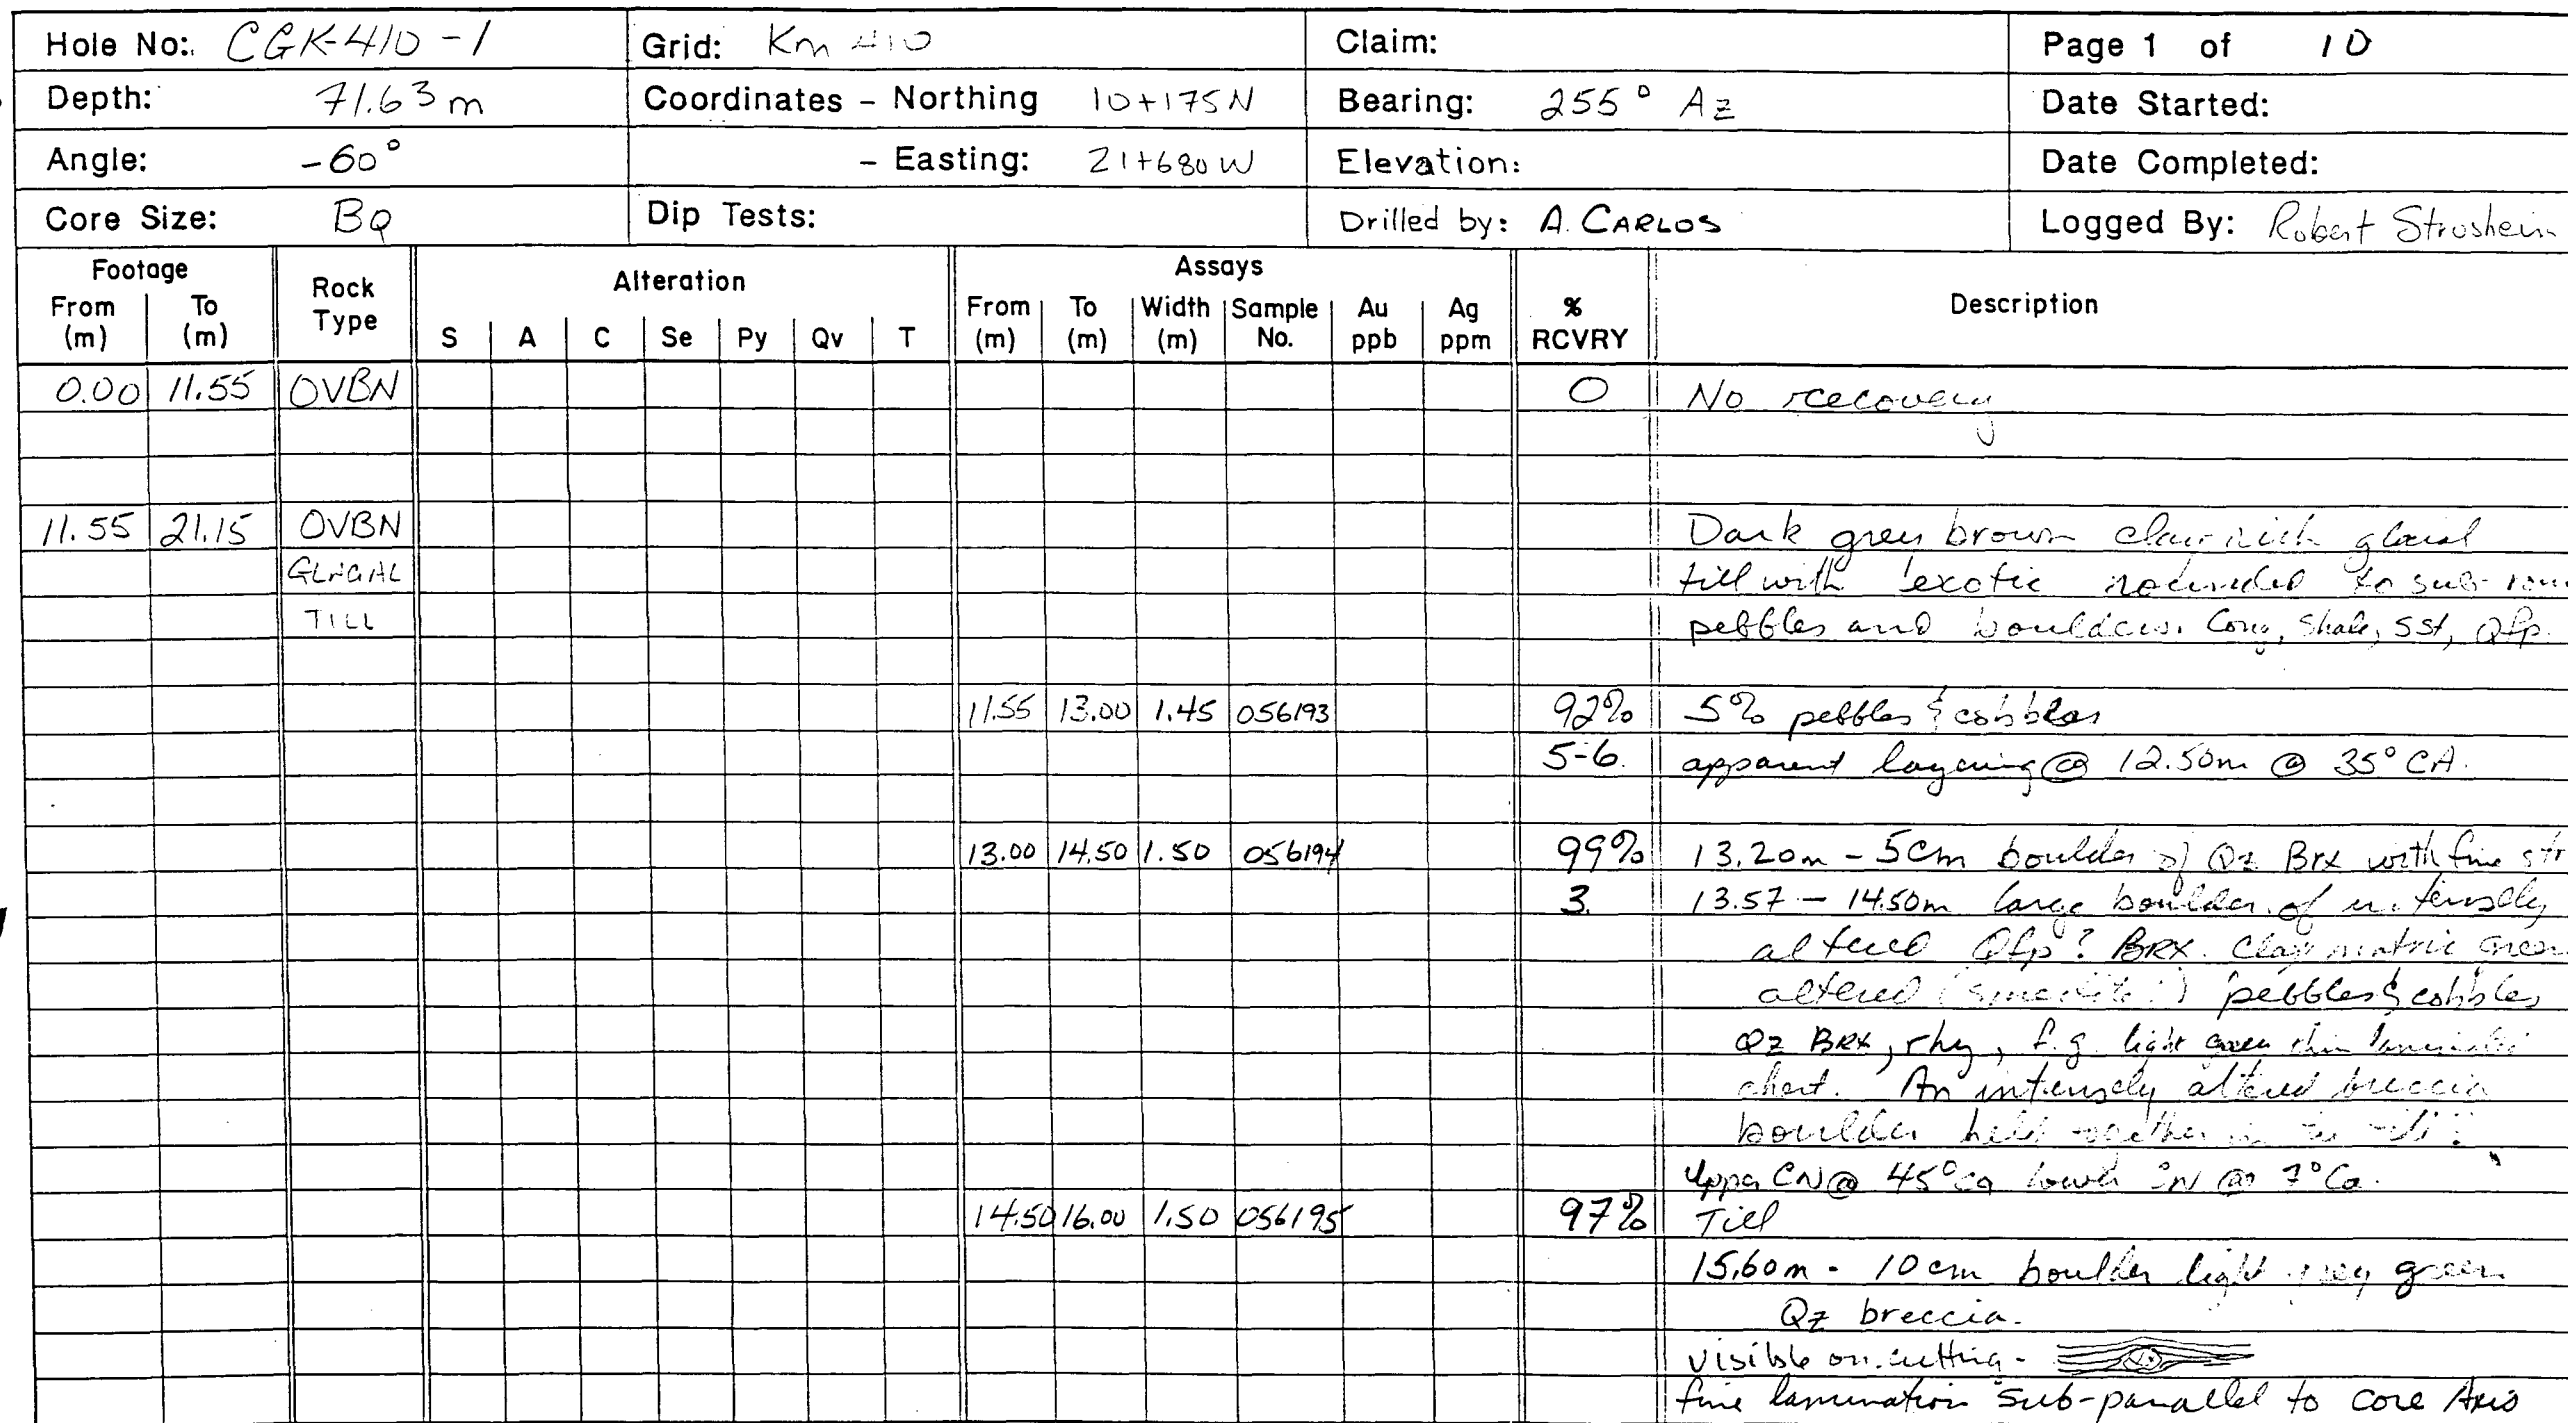 Hole No: CGK-410-1 Grid: Km 410 Claim: Page 1 of 10
Depth: 71.63 m Coordinates - Northing 10+175N Bearing: 255° Az Date Started:
Angle: -60° - Easting: 21+680W Elevation: Date Completed:
Core Size: BQ Dip Tests: Drilled by: A. CARLOS Logged By: Robert Stroshein
Footage Rock Type Alteration Assays % RCVRY Description
From (m) To (m) S A C Se Py Qv T From (m) To (m) Width (m) Sample No. Au ppb Ag ppm
0.00 11.55 OVBN 0 No recovery
11.55 21.15 OVBN Dark grey brown clay rich glacial
GLACIAL till with exotic rounded to sub-roun
TILL pebbles and boulders. Cong, Shale, SSt, Qfp.
11.55 13.00 1.45 056193 92% 5% pebbles & cobbles
5-6. apparent layering @ 12.50m @ 35° CA.
13.00 14.50 1.50 056194 99% 13.20m - 5cm boulder of Qz Brx with fine str
3. 13.57 - 14.50m large boulder of intensely
altered Qfp? BRX. Clay matrix green
altered pebbles & cobbles
Qz BRX, rhy, f.g. light green thin
chert. An intensely altered breccia
boulder held together in
Upper CN @ 45° Ca lower CN @ 7° Ca.
14.50 16.00 1.50 056195 97% Till
15.60m - 10cm boulder light grey green
Qz breccia.
visible on cutting -
fine lamination sub-parallel to core Axis